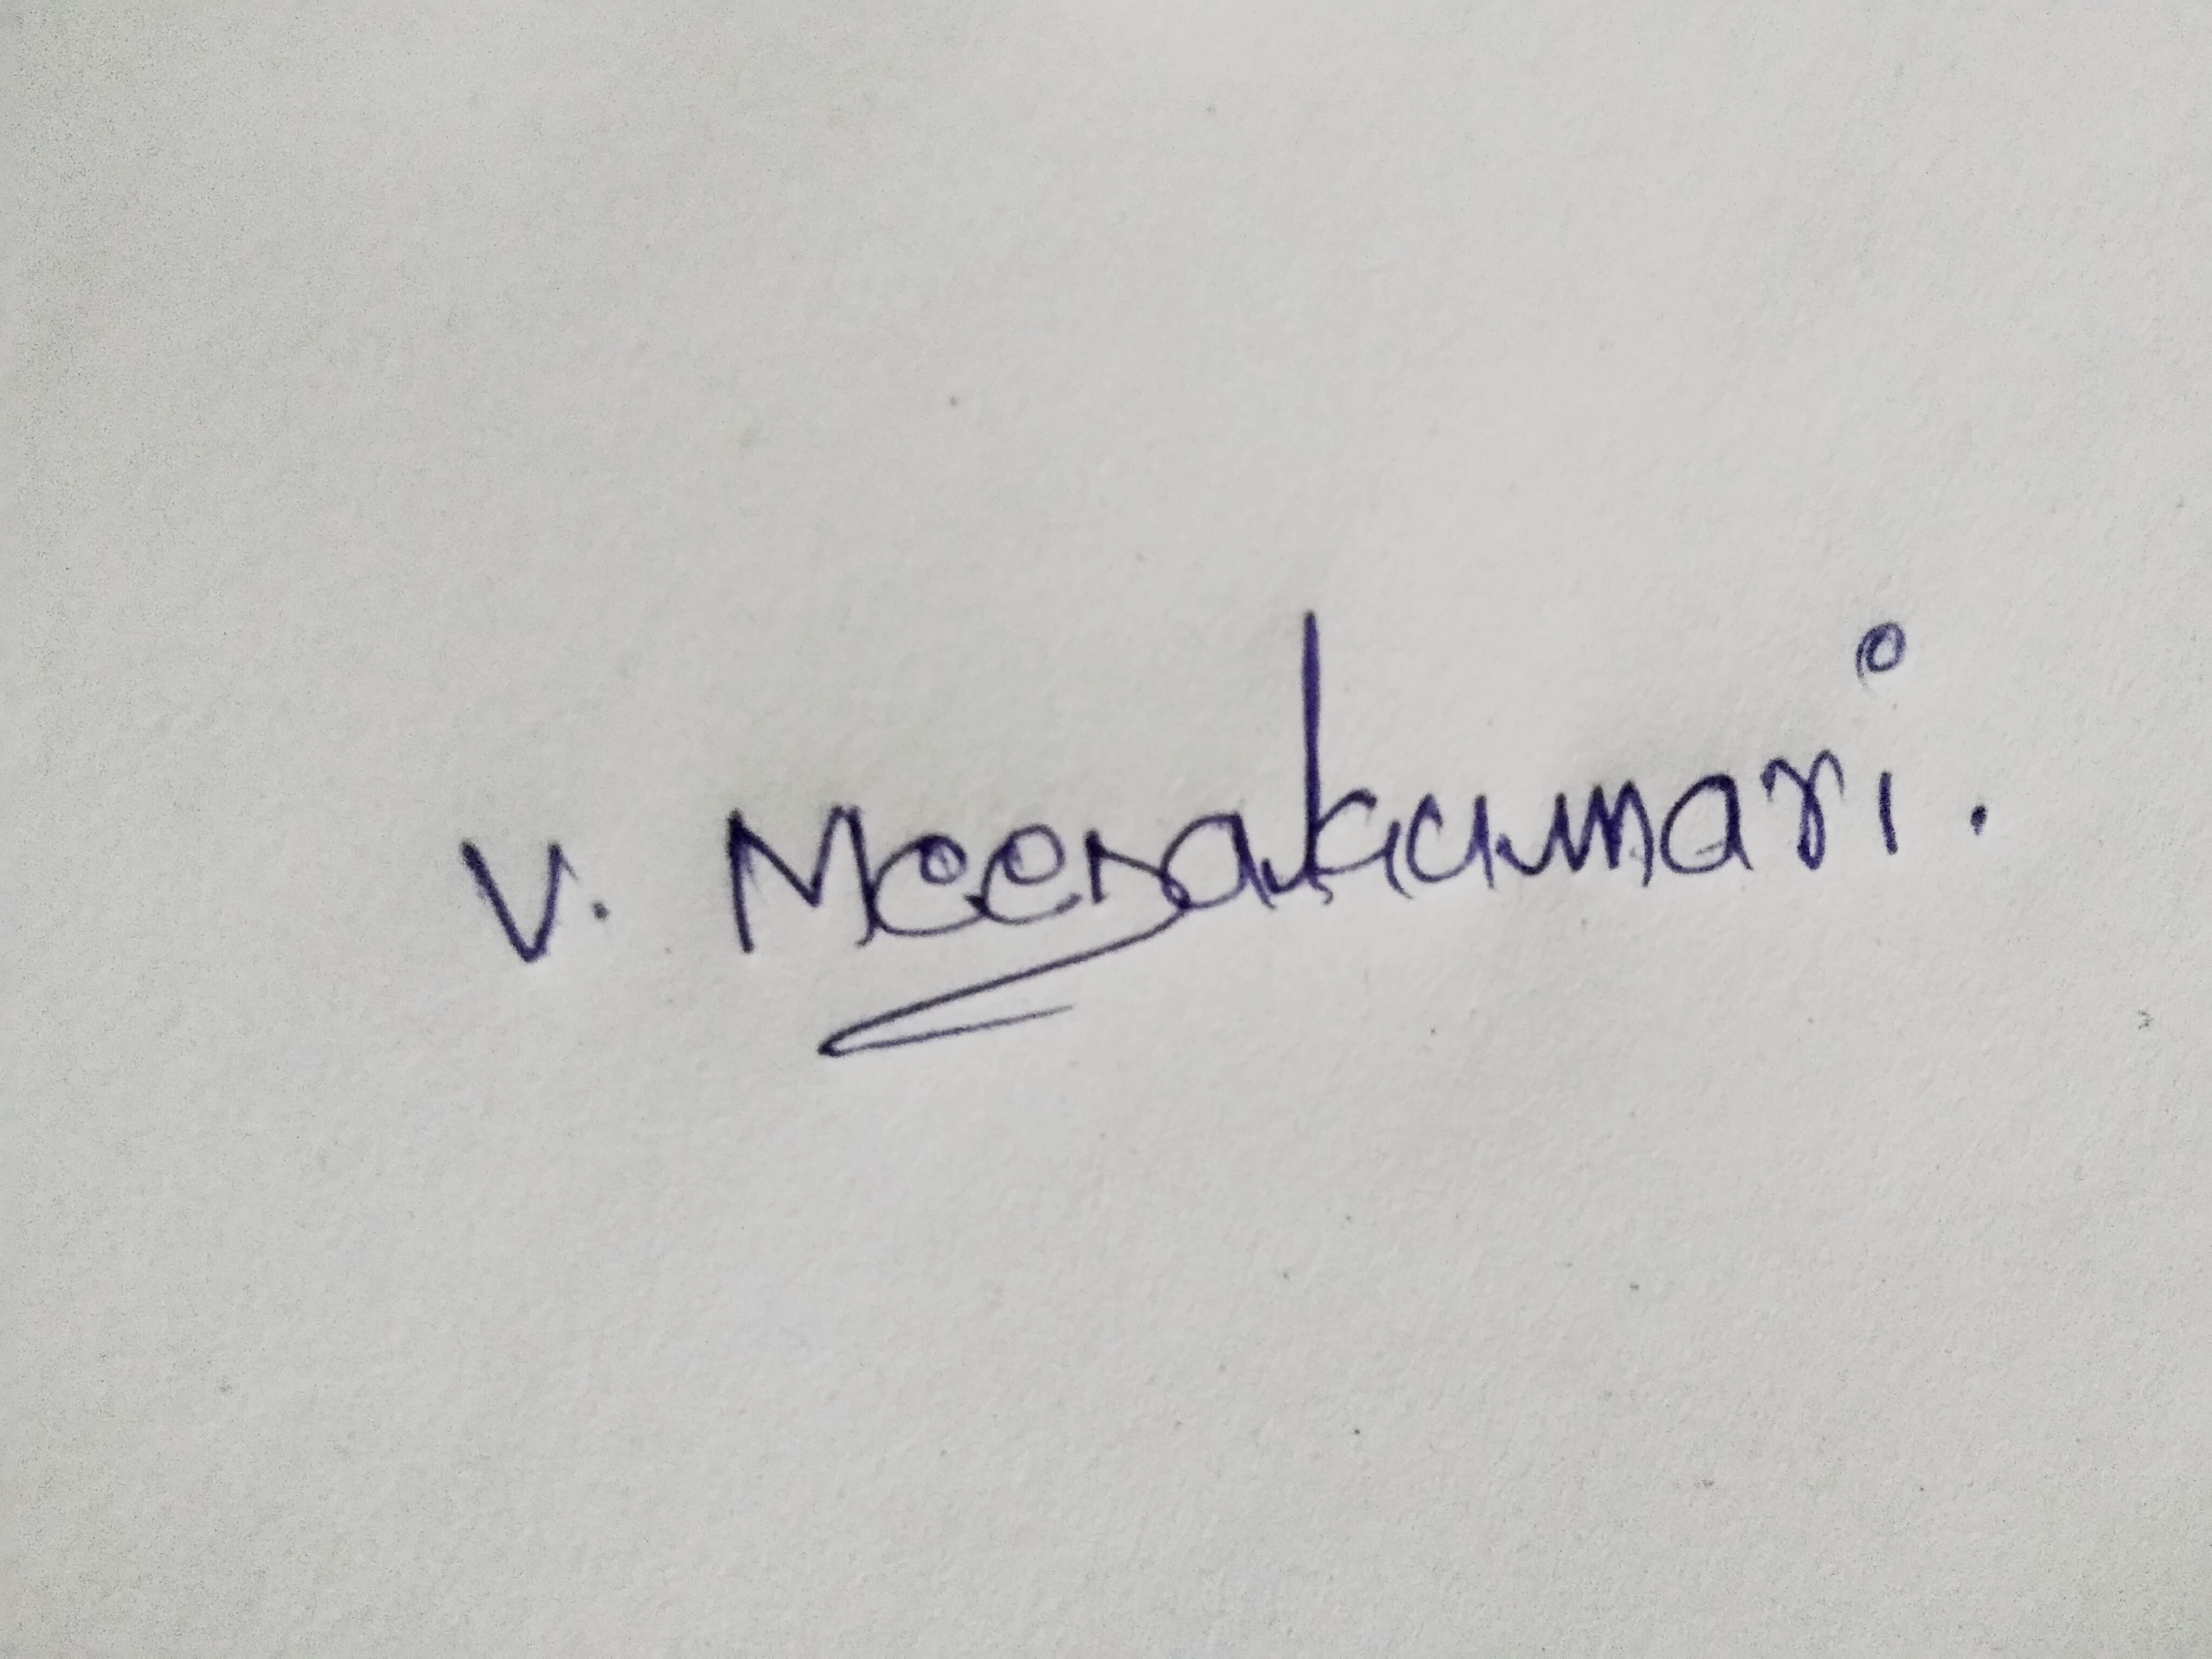 V. Meerakumari.